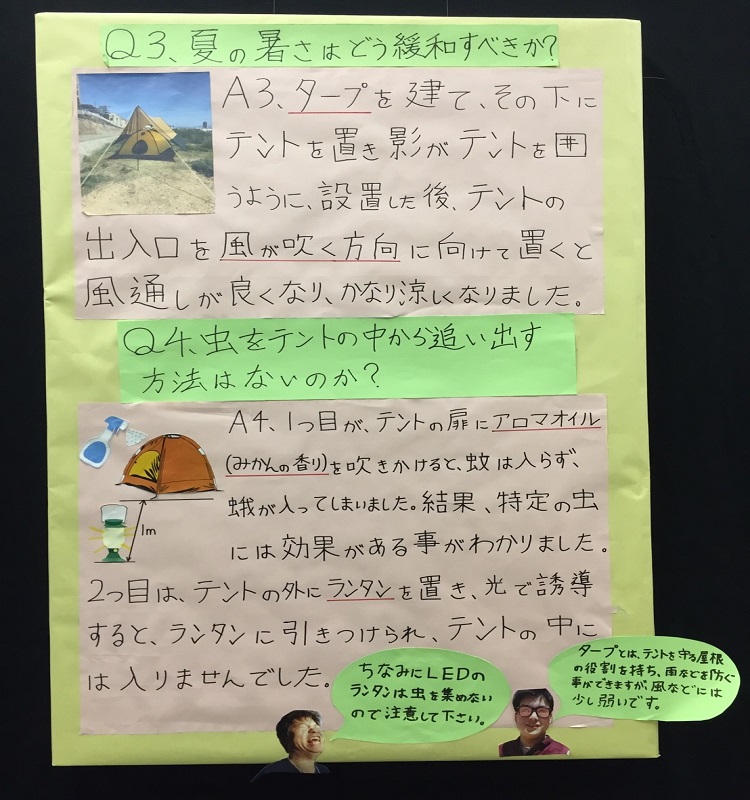 Q3、夏の暑さはどう緩和すべきか？
A3、タープを建て、その下に
テントを置き影がテントを囲
うように、設置した後、テントの
出入口を風が吹く方向に向けて置くと
風通しが良くなり、かなり涼しくなりました。
Q4、虫をテントの中から追い出す
方法はないのか？
A4、1つ目が、テントの扉にアロマオイル
(みかんの香り)を吹きかけると、蚊は入らず、
蛾が入ってしまいました。結果、特定の虫
には効果がある事がわかりました。
1m
2つ目は、テントの外にランタンを置き、光で誘導
すると、ランタンに引きつけられ、テントの中に
は入りませんでした。
ちなみにLEDの
ランタンは虫を集めない
ので注意して下さい。
タープとは、テントを守る屋根
の役割を持ち、雨などを防ぐ
事ができますが、風などには
少し弱いです。